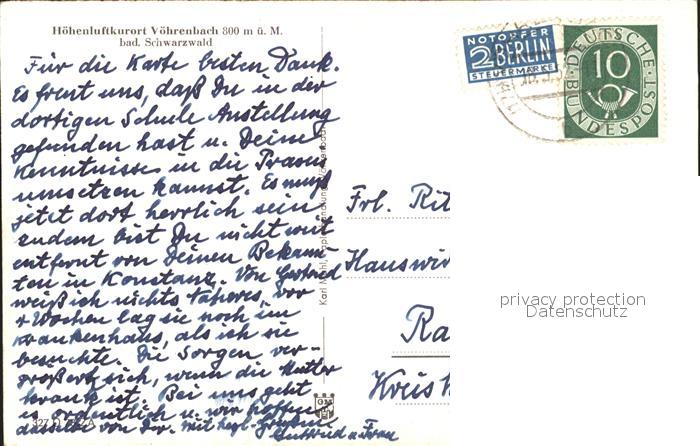 Höhenluftkurort Vöhrenbach 800 m ü. M.
bad. Schwarzwald
Für die Karte besten Dank.
Es freut uns, daß Du in der
dortigen Schule Anstellung
gefunden hast u. Deine
Kenntnisse in die Praxis
umsetzen kannst. Es muß
jetzt dort herrlich sein
zudem bist Du nicht weit
entfernt von Deinen Bekann
ten in Konstanz. Von Gertrud
weiß ich nichts Näheres, vor
Wochen lag sie noch im
Krankenhaus, als ich sie
besuchte. Die Sorgen ver-
größert sich, wenn die Mutter
krank ist. Bei uns geht
es ordentlich u. wir hoffen
dasselbe von Dir. Mit herzl. Grüßen
u. Frau
NOTOPFER
2 BERLIN
STEUERMARKE
DEUTSCHE
BUNDESPOST
10
Frl. Rit
Hauswir
Ra
Kreis K
privacy protection
Datenschutz